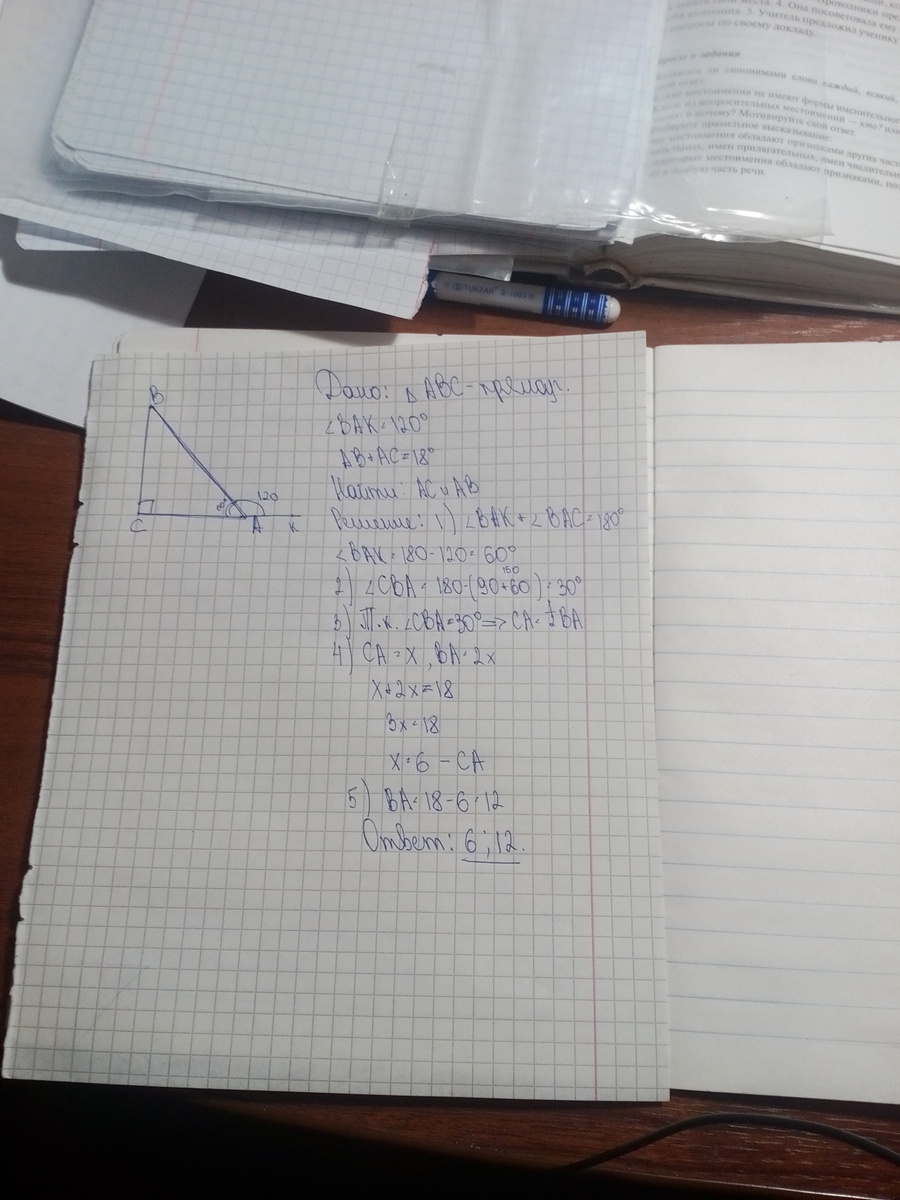 Проводники пре
места. 4. Она посоветовала ему
5. Учитель предложил ученику
по своему докладу.
ли синонимами слова каждый, всякий,
ответ.
местоимения не имеют формы именительного
из вопросительных местоимений — кто? или
и почему? Мотивируйте свой ответ.
правильное высказывание:
местоимения обладают признаками других част
имен прилагательных, имен числительн
местоимения обладают признаками, поз
в особую часть речи.
B
C
A
K
120
Дано: △ABC - прямоуг.
∠BAK = 120°
AB + AC = 18°
Найти: AC и AB
Решение: 1) ∠BAK + ∠BAC = 180°
∠BAK = 180 - 120 = 60°
150
2) ∠CBA = 180 - (90+60) = 30°
3) Т.к. ∠CBA = 30° => CA = ½ BA
4) CA = x, BA = 2x
x + 2x = 18
3x = 18
x = 6 - CA
5) BA = 18 - 6 = 12
Ответ: 6; 12.